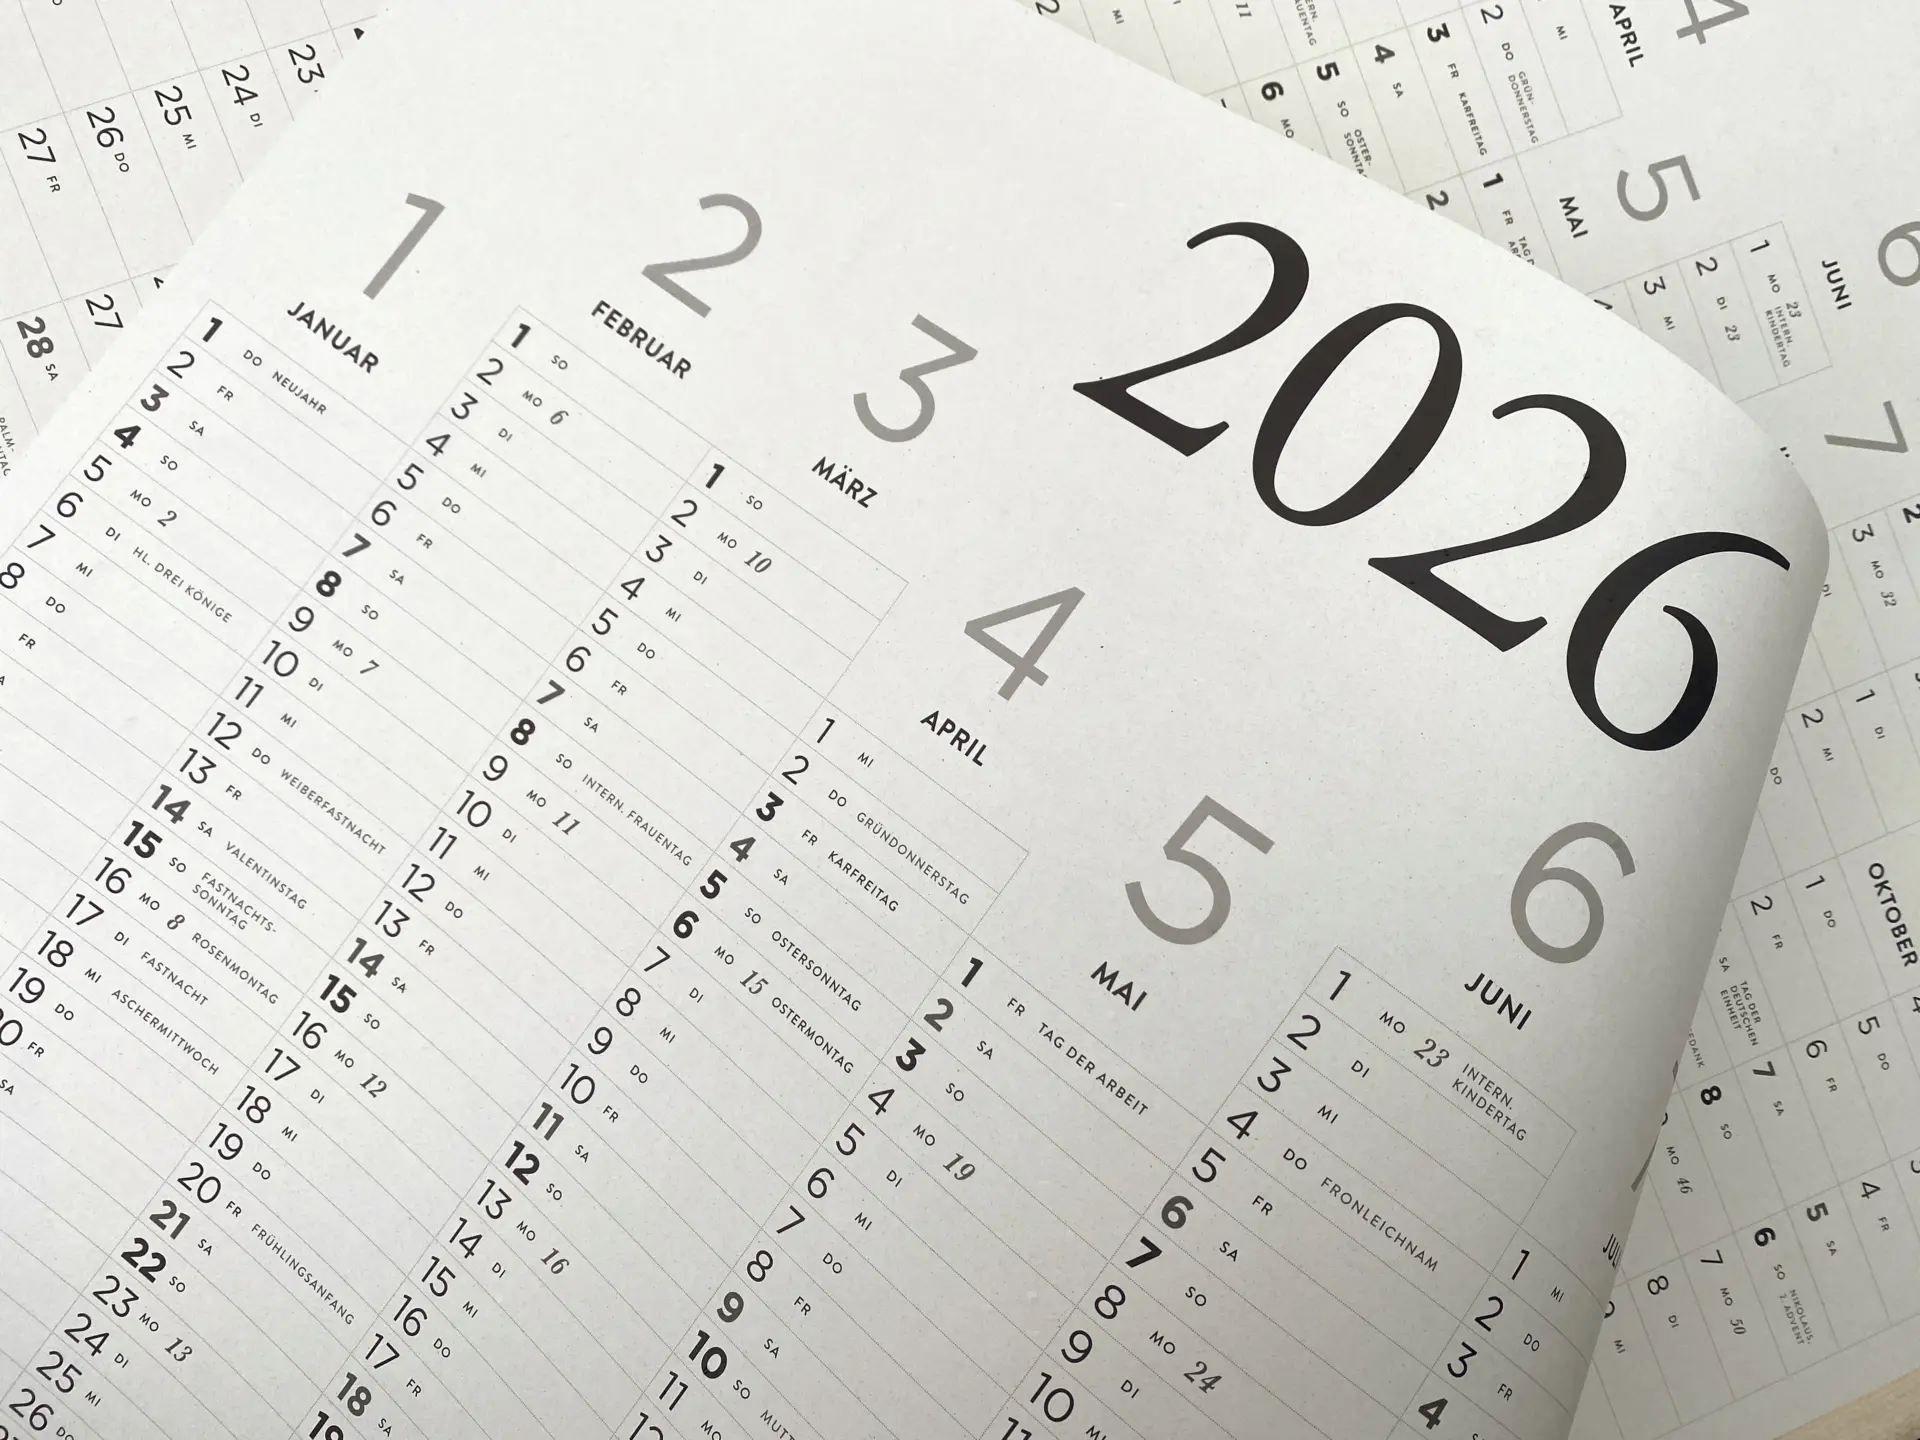 2026
1
JANUAR
1 DO NEUJAHR
2 FR
3 SA
4 SO
5 MO 2
6 DI HL. DREI KÖNIGE
7 MI
8 DO
FR
2
FEBRUAR
1 SO
2 MO 6
3 DI
4 MI
5 DO
6 FR
7 SA
8 SO
9 MO 7
10 DI
11 MI
12 DO WEIBERFASTNACHT
13 FR
14 SA VALENTINSTAG
15 SO FASTNACHTS-
SONNTAG
16 MO 8 ROSENMONTAG
17 DI FASTNACHT
18 MI ASCHERMITTWOCH
19 DO
20 FR
SA
3
MÄRZ
1 SO
2 MO 10
3 DI
4 MI
5 DO
6 FR
7 SA
8 SO INTERN. FRAUENTAG
9 MO 11
10 DI
11 MI
12 DO
13 FR
14 SA
15 SO
16 MO 12
17 DI
18 MI
19 DO
20 FR FRÜHLINGSANFANG
21 SA
22 SO
23 MO 13
24 DI
25 MI
26 DO
4
APRIL
1 MI
2 DO GRÜNDONNERSTAG
3 FR KARFREITAG
4 SA
5 SO OSTERSONNTAG
6 MO 15 OSTERMONTAG
7 DI
8 MI
9 DO
10 FR
11 SA
12 SO
13 MO 16
14 DI
15 MI
16 DO
17 FR
18 SA
19
5
MAI
1 FR TAG DER ARBEIT
2 SA
3 SO
4 MO 19
5 DI
6 MI
7 DO
8 FR
9 SA
10 SO MUTT
11 MO
12
6
JUNI
1 MO 23 INTERN.
KINDERTAG
2 DI
3 MI
4 DO FRONLEICHNAM
5 FR
6 SA
7 SO
8 MO 24
9 DI
10 MI
11
JUL
1 MI
2 DO
3 FR
4
23
24 DI
25 MI
26 DO
27 FR
27
28 SA
4
APRIL
MI
2 DO GRÜN-
DONNERSTAG
3 FR KARFREITAG
4 SA
5 SO OSTER-
SONNTA
6 MO
11
5
MAI
1 FR
2
6
JUNI
1 MO 23
INTERN.
KINDERTAG
2 DI 23
3 MI
7
3 MO 32
2
DI
1 DI
2 MI
DO
OKTOBER
1 DO
2 FR
SA TAG DER
DEUTSCHEN
EINHEIT
5 DO
6 FR
7 SA
8 SO
MO 46
4 FR
5 SA
6 SO NIKOLAUS,
2. ADVENT
7 MO 50
8 DI
MI